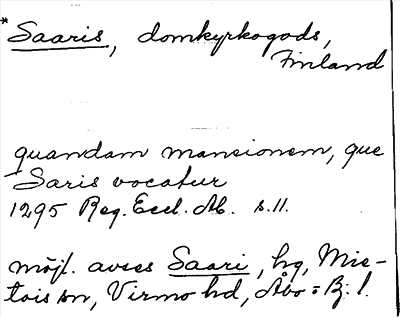 * Saaris, domkyrkogods,
Finland
quandam mansionem, que
Saris vocatur
1295 Reg. Eccl. Ab. s. 11.
möjl. avses Saari, hg, Mie-
tois sn, Virmo hd, Åbo = Bj: l.